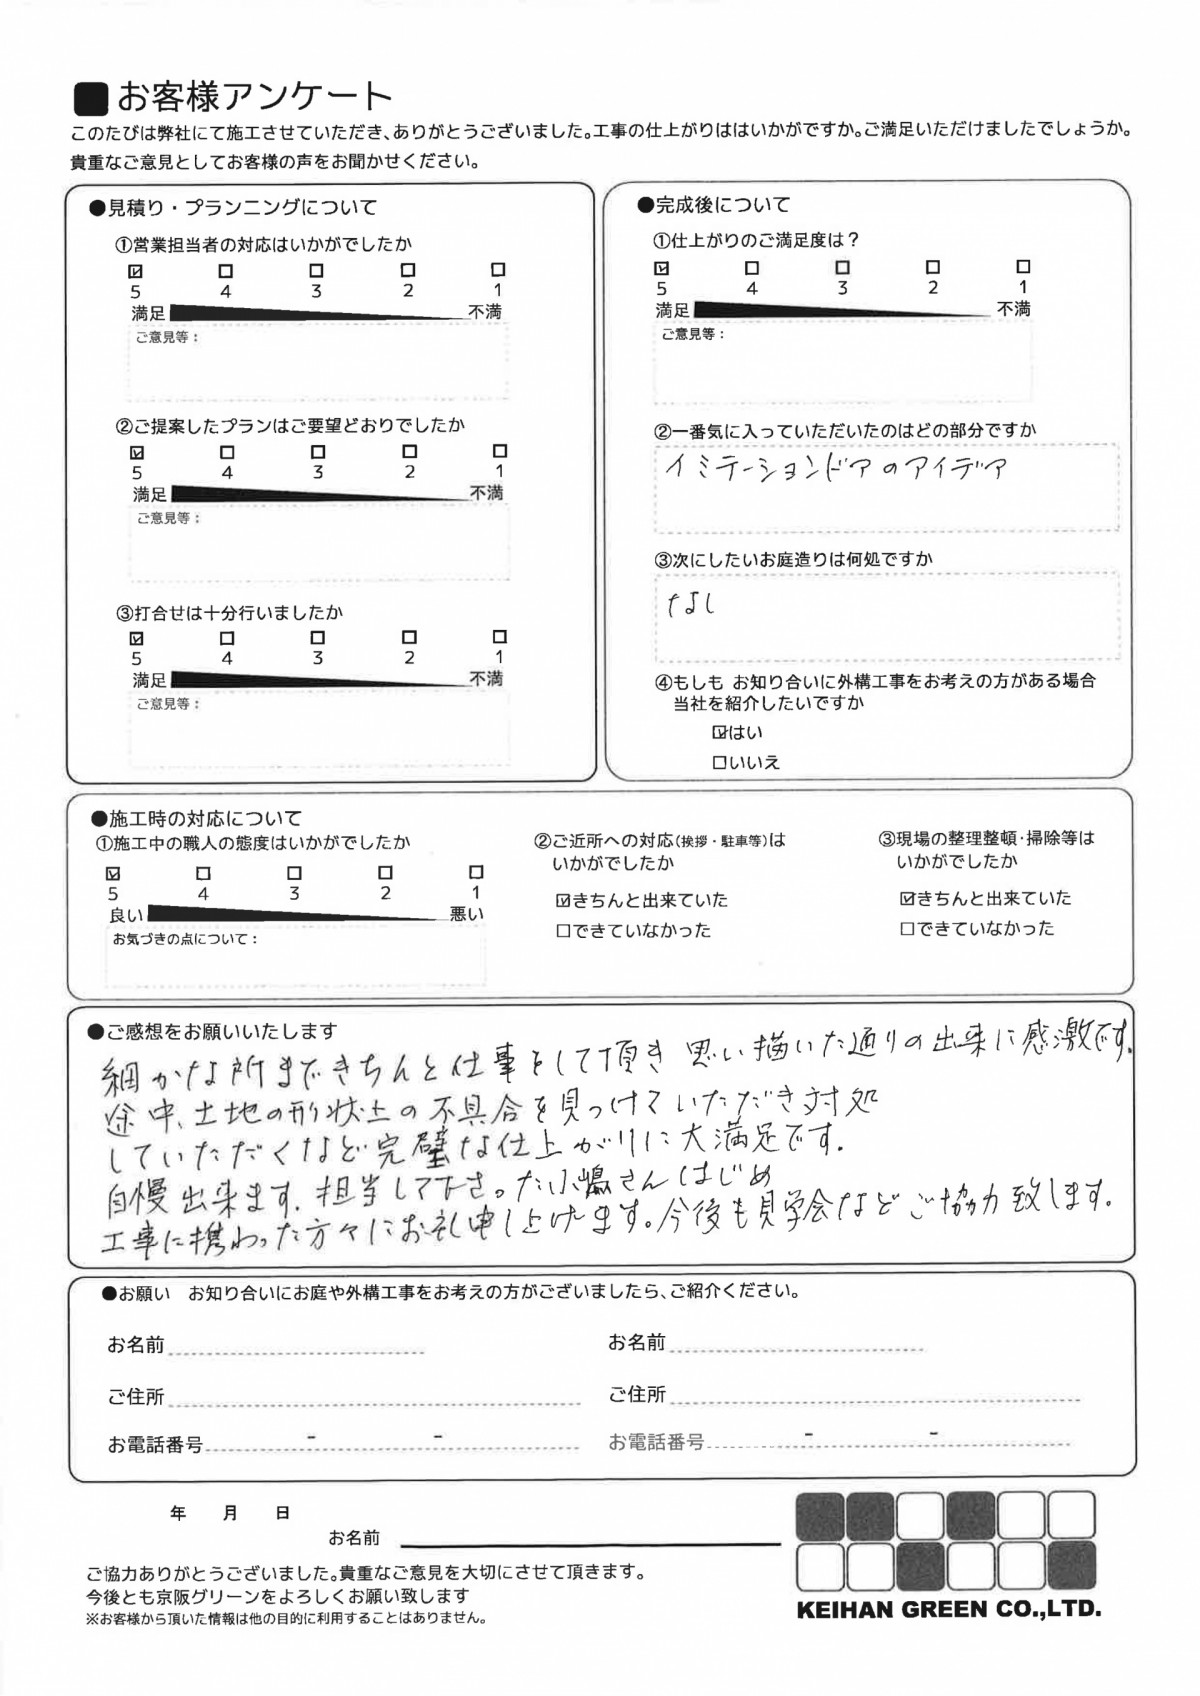 ■お客様アンケート
このたびは弊社にて施工させていただき、ありがとうございました。工事の仕上がりははいかがですか。ご満足いただけましたでしょうか。
貴重なご意見としてお客様の声をお聞かせください。
●見積り・プランニングについて
①営業担当者の対応はいかがでしたか
☑ □ □ □ □
5 4 3 2 1
満足 不満
ご意見等：
②ご提案したプランはご要望どおりでしたか
☑ □ □ □ □
5 4 3 2 1
満足 不満
ご意見等：
③打合せは十分行いましたか
☑ □ □ □ □
5 4 3 2 1
満足 不満
ご意見等：
●完成後について
①仕上がりのご満足度は？
☑ □ □ □ □
5 4 3 2 1
満足 不満
ご意見等：
②一番気に入っていただいたのはどの部分ですか
イミテーションドアのアイデア
③次にしたいお庭造りは何処ですか
なし
④もしも お知り合いに外構工事をお考えの方がある場合
当社を紹介したいですか
☑はい
□いいえ
●施工時の対応について
①施工中の職人の態度はいかがでしたか
☑ □ □ □ □
5 4 3 2 1
良い 悪い
お気づきの点について：
②ご近所への対応(挨拶・駐車等)は
いかがでしたか
☑きちんと出来ていた
□できていなかった
③現場の整理整頓・掃除等は
いかがでしたか
☑きちんと出来ていた
□できていなかった
●ご感想をお願いいたします
細かな所まできちんと仕事をして頂き 思い描いた通りの出来に感激です。
途中、土地の形状上の不具合を見つけていただき対処
していただくなど完璧な仕上がりに大満足です。
自慢出来ます。担当して下さった小嶋さんはじめ
工事に携わった方々にお礼申し上げます。今後も見学会などご協力致します。
●お願い お知り合いにお庭や外構工事をお考えの方がございましたら、ご紹介ください。
お名前 お名前
ご住所 ご住所
お電話番号 - - お電話番号 - -
年 月 日
お名前
ご協力ありがとうございました。貴重なご意見を大切にさせて頂きます。
今後とも京阪グリーンをよろしくお願い致します
※お客様から頂いた情報は他の目的に利用することはありません。
KEIHAN GREEN CO.,LTD.